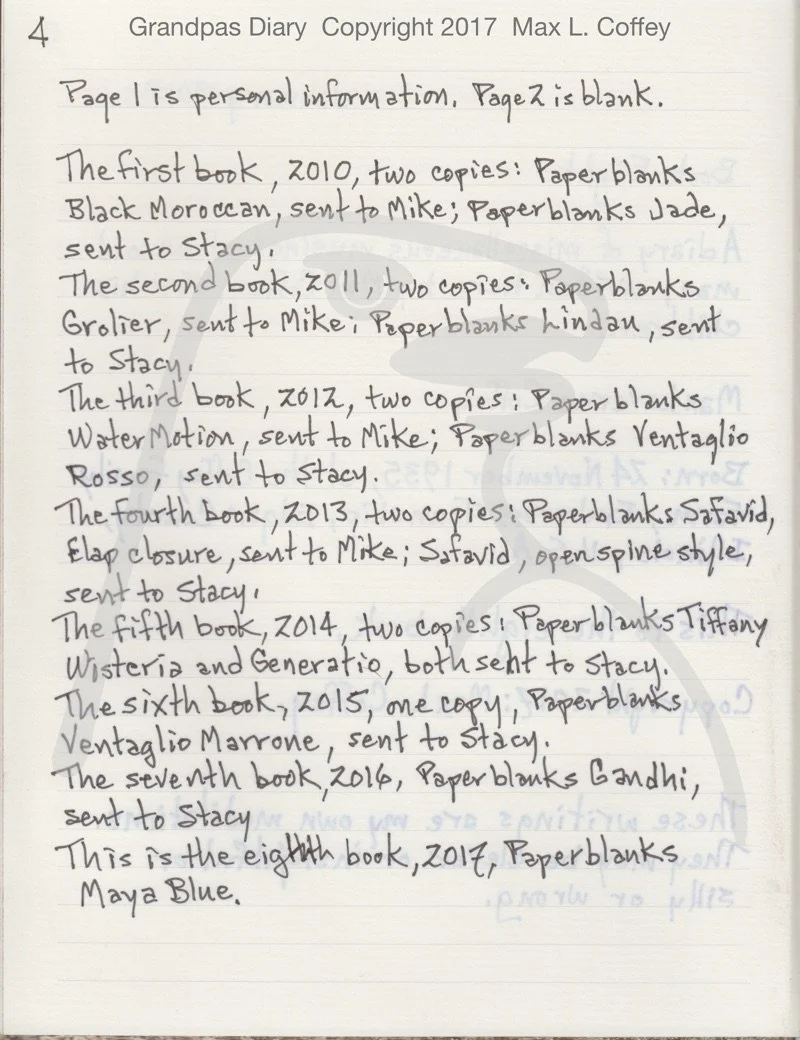 4
Grandpas Diary Copyright 2017 Max L. Coffey
Page 1 is personal information. Page 2 is blank.
The first book, 2010, two copies: Paperblanks
Black Moroccan, sent to Mike; Paperblanks Jade,
sent to Stacy.
The second book, 2011, two copies: Paperblanks
Grolier, sent to Mike; Paperblanks Lindau, sent
to Stacy.
The third book, 2012, two copies: Paperblanks
Water Motion, sent to Mike; Paperblanks Ventaglio
Rosso, sent to Stacy.
The fourth book, 2013, two copies: Paperblanks Safavid,
Flap closure, sent to Mike; Safavid, open spine style,
sent to Stacy.
The fifth book, 2014, two copies: Paperblanks Tiffany
Wisteria and Generatio, both sent to Stacy.
The sixth book, 2015, one copy, Paperblanks
Ventaglio Marrone, sent to Stacy.
The seventh book, 2016, Paperblanks Gandhi,
sent to Stacy
This is the eighth book, 2017, Paperblanks
Maya Blue.